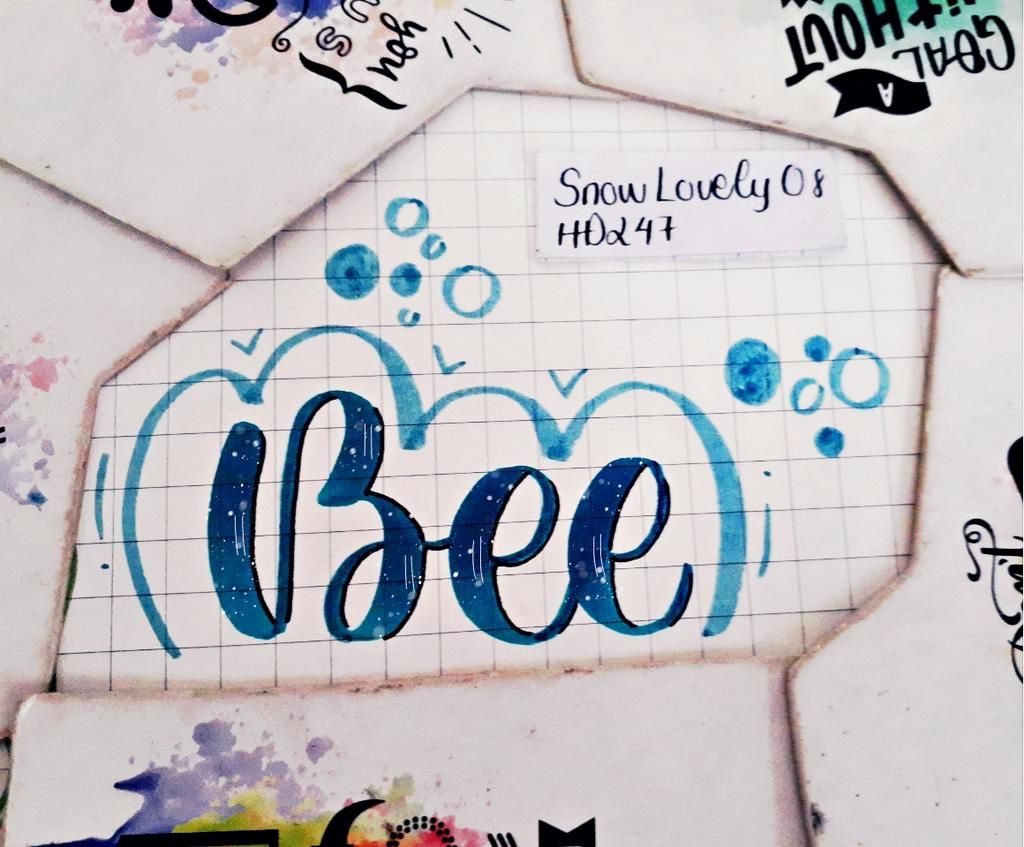 you
us
GOAL
WiTHOUT
A
Snow Lovely 08
HD247
Bee